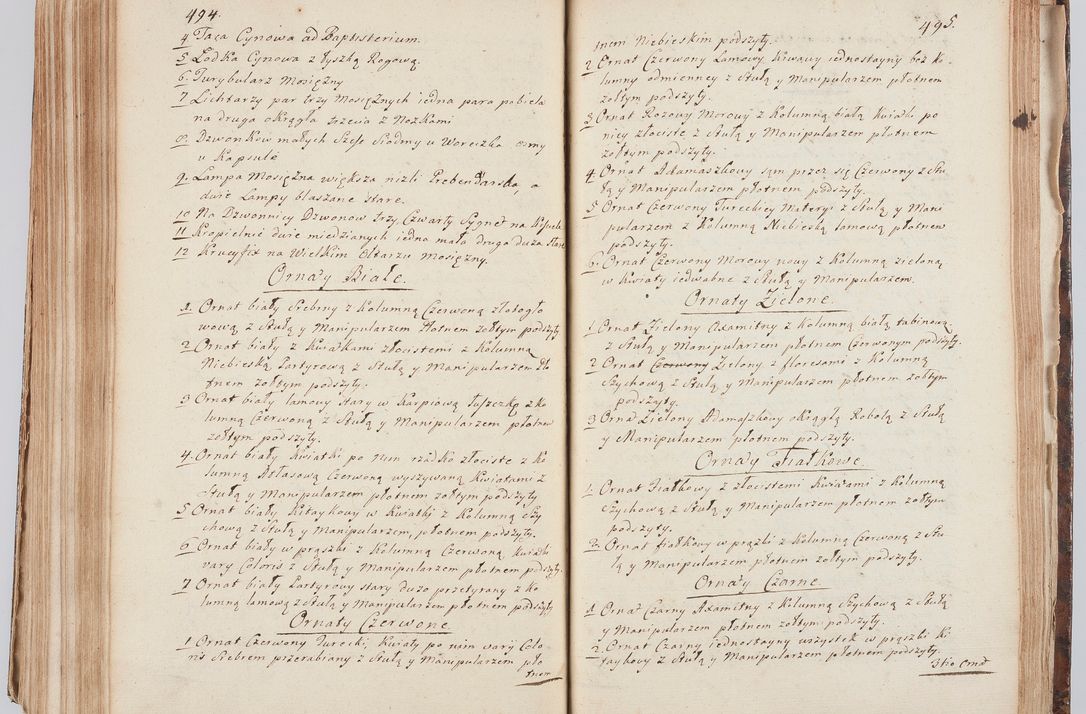 494.
4 Taca Cynowa ad Baptisterium.
5 Łodka Cynowa z łyszką Rogową.
6. Turybularz Mosiężny
7 Lichtarzy par trzy Mosiężnych iedna para pobiela
na druga okrągła trzecia z Nozkami
8. Dzwonkow małych Szesc Siodmy u Woreczka osmy
u Kapsulé
9. Lampa Mosiężna większa nizli Prebendarska a
dwie Lampy blaszane stare.
10 Na Dzwonnicy Dzwonow trzy Czwarty Sygnet na Kośiele
11 Kropielnic dwie miedzianych iedna mała druga duza stare
12 Krucyfix na Wielkim Ołtarzu Mosiężny.
Ornaty Białe.
1. Ornat biały Srebrny z Kolumną Czerwoną złotogło
wową z Stułą y Manipularzem Płotnem zołtym podszyty
2 Ornat biały z Kwiatkami złocistemi z Kolumną
Niebieską Partyrową z Stułą y Manipularzem Pło
tnem zołtym podszyty.
3 Ornat biały lamowy stary w Karpiową łuszczkę z ko
lumną Czerwoną z Stułą y Manipularzem płotnem
zołtym podszyty.
4. Ornat biały Kwiatki po nim rzadko złociste z Ko
lumną Atłasową Czerwoną wyszywaną Kwiatami z
Stułą y Manipularzem płotnem zołtym podszyty
5 Ornat biały Kitaykowy w Kwiatki z Kolumną Szy
chową z Stułą y Manipularzem, płotnem podszyty.
6 Ornat biały w prążki z Kolumną Czerwoną, kwiatki
vary Coloris z Stułą y Manipularzem płotnem podszyty.
7 Ornat biały Partyrowy stary duzo przetyrany z Ko
lumną lamową z Stułą y Manipularzem płotnem podszyty
Ornaty Czerwone
1. Ornat Czerwony Turecki, Kwiaty po nim vary Colo
ris Srebrem przerabiany z Stułą y Manipularzem pło
tnem
495.
tnem Niebieskim podszyty.
2 Ornat Czerwony Lamowy Krwawy iednostayny bez ko
lumny odmienney z Stułą y Manipularzem płotnem
zołtym podszyty.
3 Ornat Rozowy Morowy z Kolumną białą kwiatki po
niey złociste z Stułą y Manipularzem płotnem
zołtym podszyty.
4 Ornat Adamaszkowy sam przez się Czerwony z Stu
łą y Manipularzem płotnem podszyty.
5 Ornat Czerwony Tureckiey Matery z Stułą y Mani
pularzem z Kolumną Niebieską lamową płotnem
podszyty.
6. Ornat Czerwony Morowy nowy z Kolumną zieloną
w Kwiaty iedwabne z Stułą y Manipularzem.
Ornaty Zielone.
1 Ornat Zielony Axamitny z Kolumną białą tabinową
z Stułą y Manipularzem płotnem Czerwonym podszyty.
2 Ornat Czerwony Zielony z floresami z Kolumną
Szychową z Stułą y Manipularzem płotnem zołtym
podszyty.
3 Orna Zielony Adamaszkowy okrągłą Robotą z Stułą
y Manipularzem płotnem podszyty.
Ornaty Fiałkowe.
1. Ornat Fiałkowy z złocistemi Kwiatami z Kolumną
Szychową z Stułą y Manipularzem płotnem zołtym
podszyty.
2. Ornat fiałkowy w prążki z Kolumną Czerwoną z Stu
łą y Manipularzem płotnem zołtym podszyty.
Ornaty Czarne
1 Ornat Czarny Axamitny z Kolumną Szychową z Stułą
y Manipularzem płotnem zołtym podszyty.
2. Ornat Czarny iednostayny wszystek w prążki Ki
taykowy z Stułą y Manipularzem płotnem podszyty.
3tio Ornat